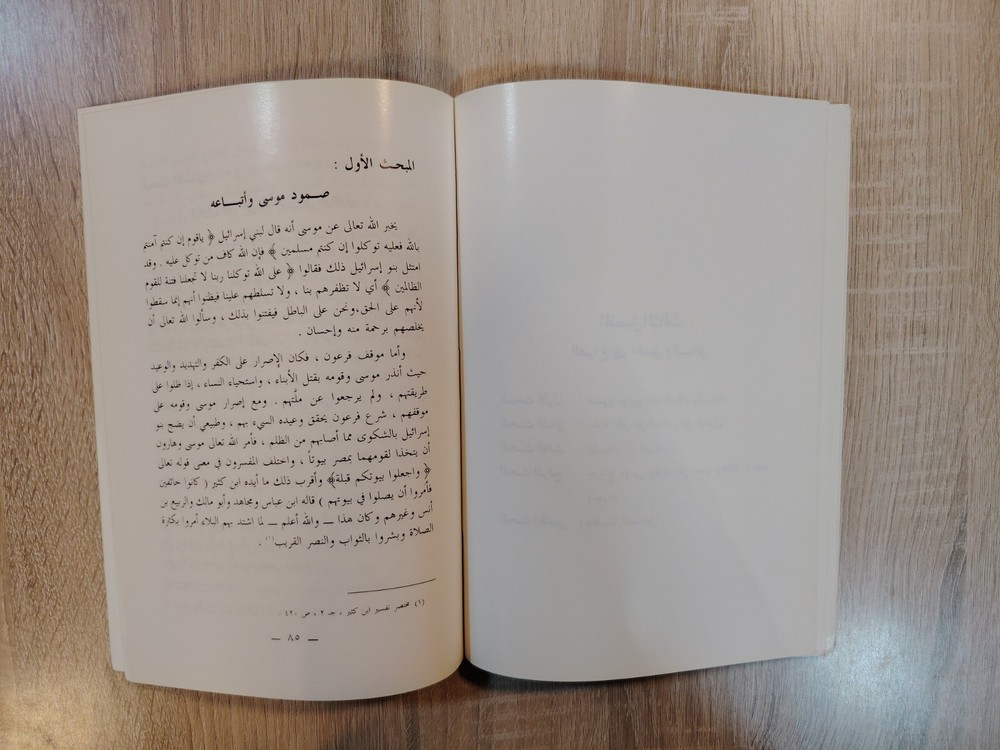 المبحث الأول :
صمود موسى وأتباعه
يخبر الله تعالى عن موسى أنه قال لبني إسرائيل ﴿ ياقوم إن كنتم آمنتم
بالله فعليه توكلوا إن كنتم مسلمين ﴾ فإن الله كاف من توكل عليه . وقد
امتثل بنو إسرائيل ذلك فقالوا ﴿ على الله توكلنا ربنا لا تجعلنا فتنة للقوم
الظالمين ﴾ أي لا تظفرهم بنا ، ولا تسلطهم علينا فيظنوا أنهم إنما سقطوا
لأنهم على الحق،ونحن على الباطل فيفتنوا بذلك ، وسألوا الله تعالى أن
يخلصهم برحمة منه وإحسان .
وأما موقف فرعون ، فكان الإصرار على الكفر والتهديد والوعيد
حيث أنذر موسى وقومه بقتل الأبناء ، واستحياء النساء ، إذا ظلوا على
طريقتهم ، ولم يرجعوا عن ملّتهم . ومع إصرار موسى وقومه على
موقفهم ، شرع فرعون يحقق وعيده السيء بهم ، وطبيعي أن يضج بنو
إسرائيل بالشكوى مما أصابهم من الظلم ، فأمر الله تعالى موسى وهارون
أن يتخذا لقومهما بمصر بيوتاً ، واختلف المفسرون في معنى قوله تعالى
﴿ واجعلوا بيوتكم قبلة﴾ وأقرب ذلك ما أيده ابن كثير ( كانوا خائفين
فأمروا أن يصلوا في بيوتهم ) قاله ابن عباس ومجاهد وأبو مالك والربيع بن
أنس وغيرهم وكان هذا ــ والله أعلم ــ لما اشتد بهم البلاء أمروا بكثرة
الصلاة وبشروا بالثواب والنصر القريب(١) .
(١) مختصر تفسير ابن كثير ، جـ ٢ ، ص ٤٢٠
ــ ٨٥ ــ